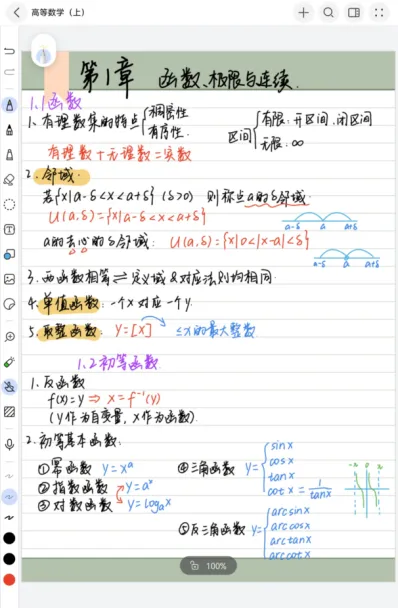 高等数学（上）
第1章 函数、极限与连续.
1.1函数
1、有理数集的特点 { 稠密性. 有序性.
区间 { 有限：开区间，闭区间 无限：∞
有理数+无理数=实数
2、邻域.
若{x|a-δ<x<a+δ} (δ>0) 则称点a的δ邻域.
U(a,δ)={x|a-δ<x<a+δ}
a-δ a a+δ
a的去心的δ邻域： U(a,δ)={x|0<|x-a|<δ}
a-δ a a+δ
3、两函数相等⇌定义域&对应法则均相同.
4、单值函数：一个x对应一个y.
5、取整函数： y=[x] ≤x的最大整数
1.2初等函数
1、反函数
f(x)=y ⇒ x=f⁻¹(y)
(y作为自变量，x作为函数).
2、初等基本函数：
①幂函数 y=xᵃ
②指数函数 y=aˣ
③对数函数 y=logₐx
④三角函数 y= { sinx
cosx
tanx
cotx = 1/tanx
⑤反三角函数 y= { arcsinx
arccosx
arctanx
arccotx
100%